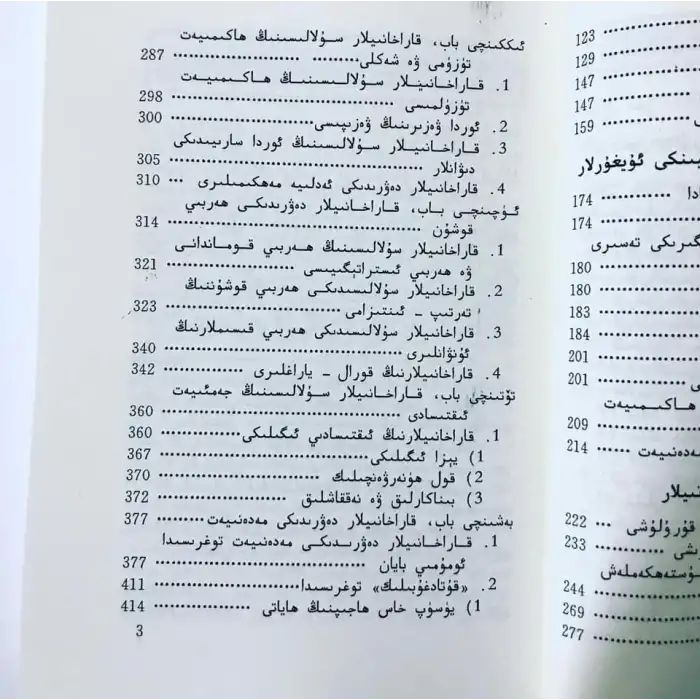 ئىككىنچى باب، قاراخانىيلار سۇلالىسىنىڭ ھاكىمىيەت
تۈزۈمى ۋە شەكلى ........ ............ 287
1. قاراخانىيلار سۇلالىسىنىڭ ھاكىمىيەت
تۈزۈلمىسى ............ 298
2. ئوردا ۋەزىرىنىڭ ۋەزىپىسى ............ 300
3. قاراخانىيلار سۇلالىسىنىڭ ئوردا سارىيىدىكى
دىۋانلار ............ 305
4. قاراخانىيلار دەۋرىدىكى ئەدلىيە مەھكىمىلىرى ... 310
ئۈچىنچى باب، قاراخانىيلار دەۋرىدىكى ھەربىي
قوشۇن ............ 314
1. قاراخانىيلار سۇلالىسىنىڭ ھەربىي قوماندانى
ۋە ھەربىي ئىستراتېگىيىسى ............ 321
2. قاراخانىيلار سۇلالىسىدىكى ھەربىي قوشۇننىڭ
تەرتىپ - ئىنتىزامى ............ 323
3. قاراخانىيلار سۇلالىسىدىكى ھەربىي قىسىملارنىڭ
ئۇنۋانلىرى ............ 340
4. قاراخانىيلارنىڭ قورال - ياراغلىرى ............ 342
تۆتىنچى باب، قاراخانىيلار سۇلالىسىنىڭ جەمئىيەت
ئىقتىسادى ............ 360
1. قاراخانىيلارنىڭ ئىقتىسادىي ئىگىلىكى ............ 360
1) يېزا ئىگىلىكى ............ 367
2) قول ھۈنەرۋەنچىلىك ............ 370
3) بىناكارلىق ۋە نەققاشلىق ............ 372
بەشىنچى باب، قاراخانىيلار دەۋرىدىكى مەدەنىيەت ............ 377
1. قاراخانىيلار دەۋرىدىكى مەدەنىيەت توغرىسىدا
ئومۇمىي بايان ............ 377
2. «قۇتادغۇبىلىك» توغرىسىدا ............ 411
1) يۈسۈپ خاس ھاجىپنىڭ ھاياتى ............ 414
3
123
129
147
147
159
ئۇيغۇرلار
174
174
تەسىرى
180
180
183
184
201
201
ھاكىمىيەت
209
مەدەنىيەت ...... 214
قۇرۇلۇشى ... 222
233
244
269
277